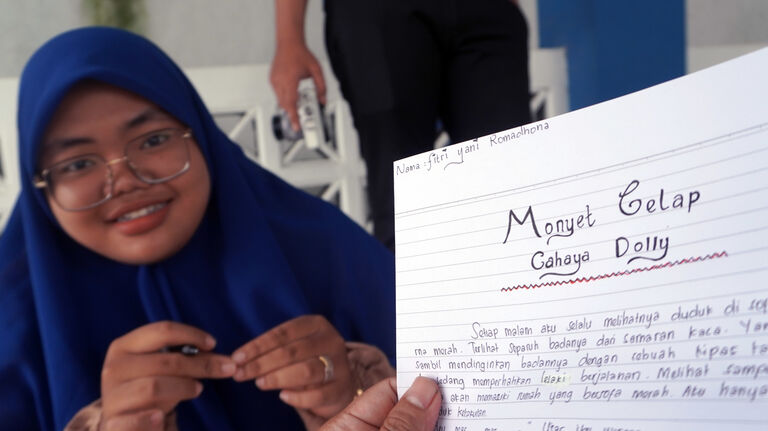 Nama : fitri yani Romadhona
Monyet Gelap
Cahaya Dolly
Setiap malam aku selalu melihatnya duduk di sof
rna merah. Terlihat separuh badanya dari samaran kaca. Yan
sambil mendinginkan badannya dengan sebuah kipas ta
edang memperhatikan lelaki berjalanan. Melihat sampa
akan memasuki rumah yang bersofa merah. Aku hanya
duk ketakutan